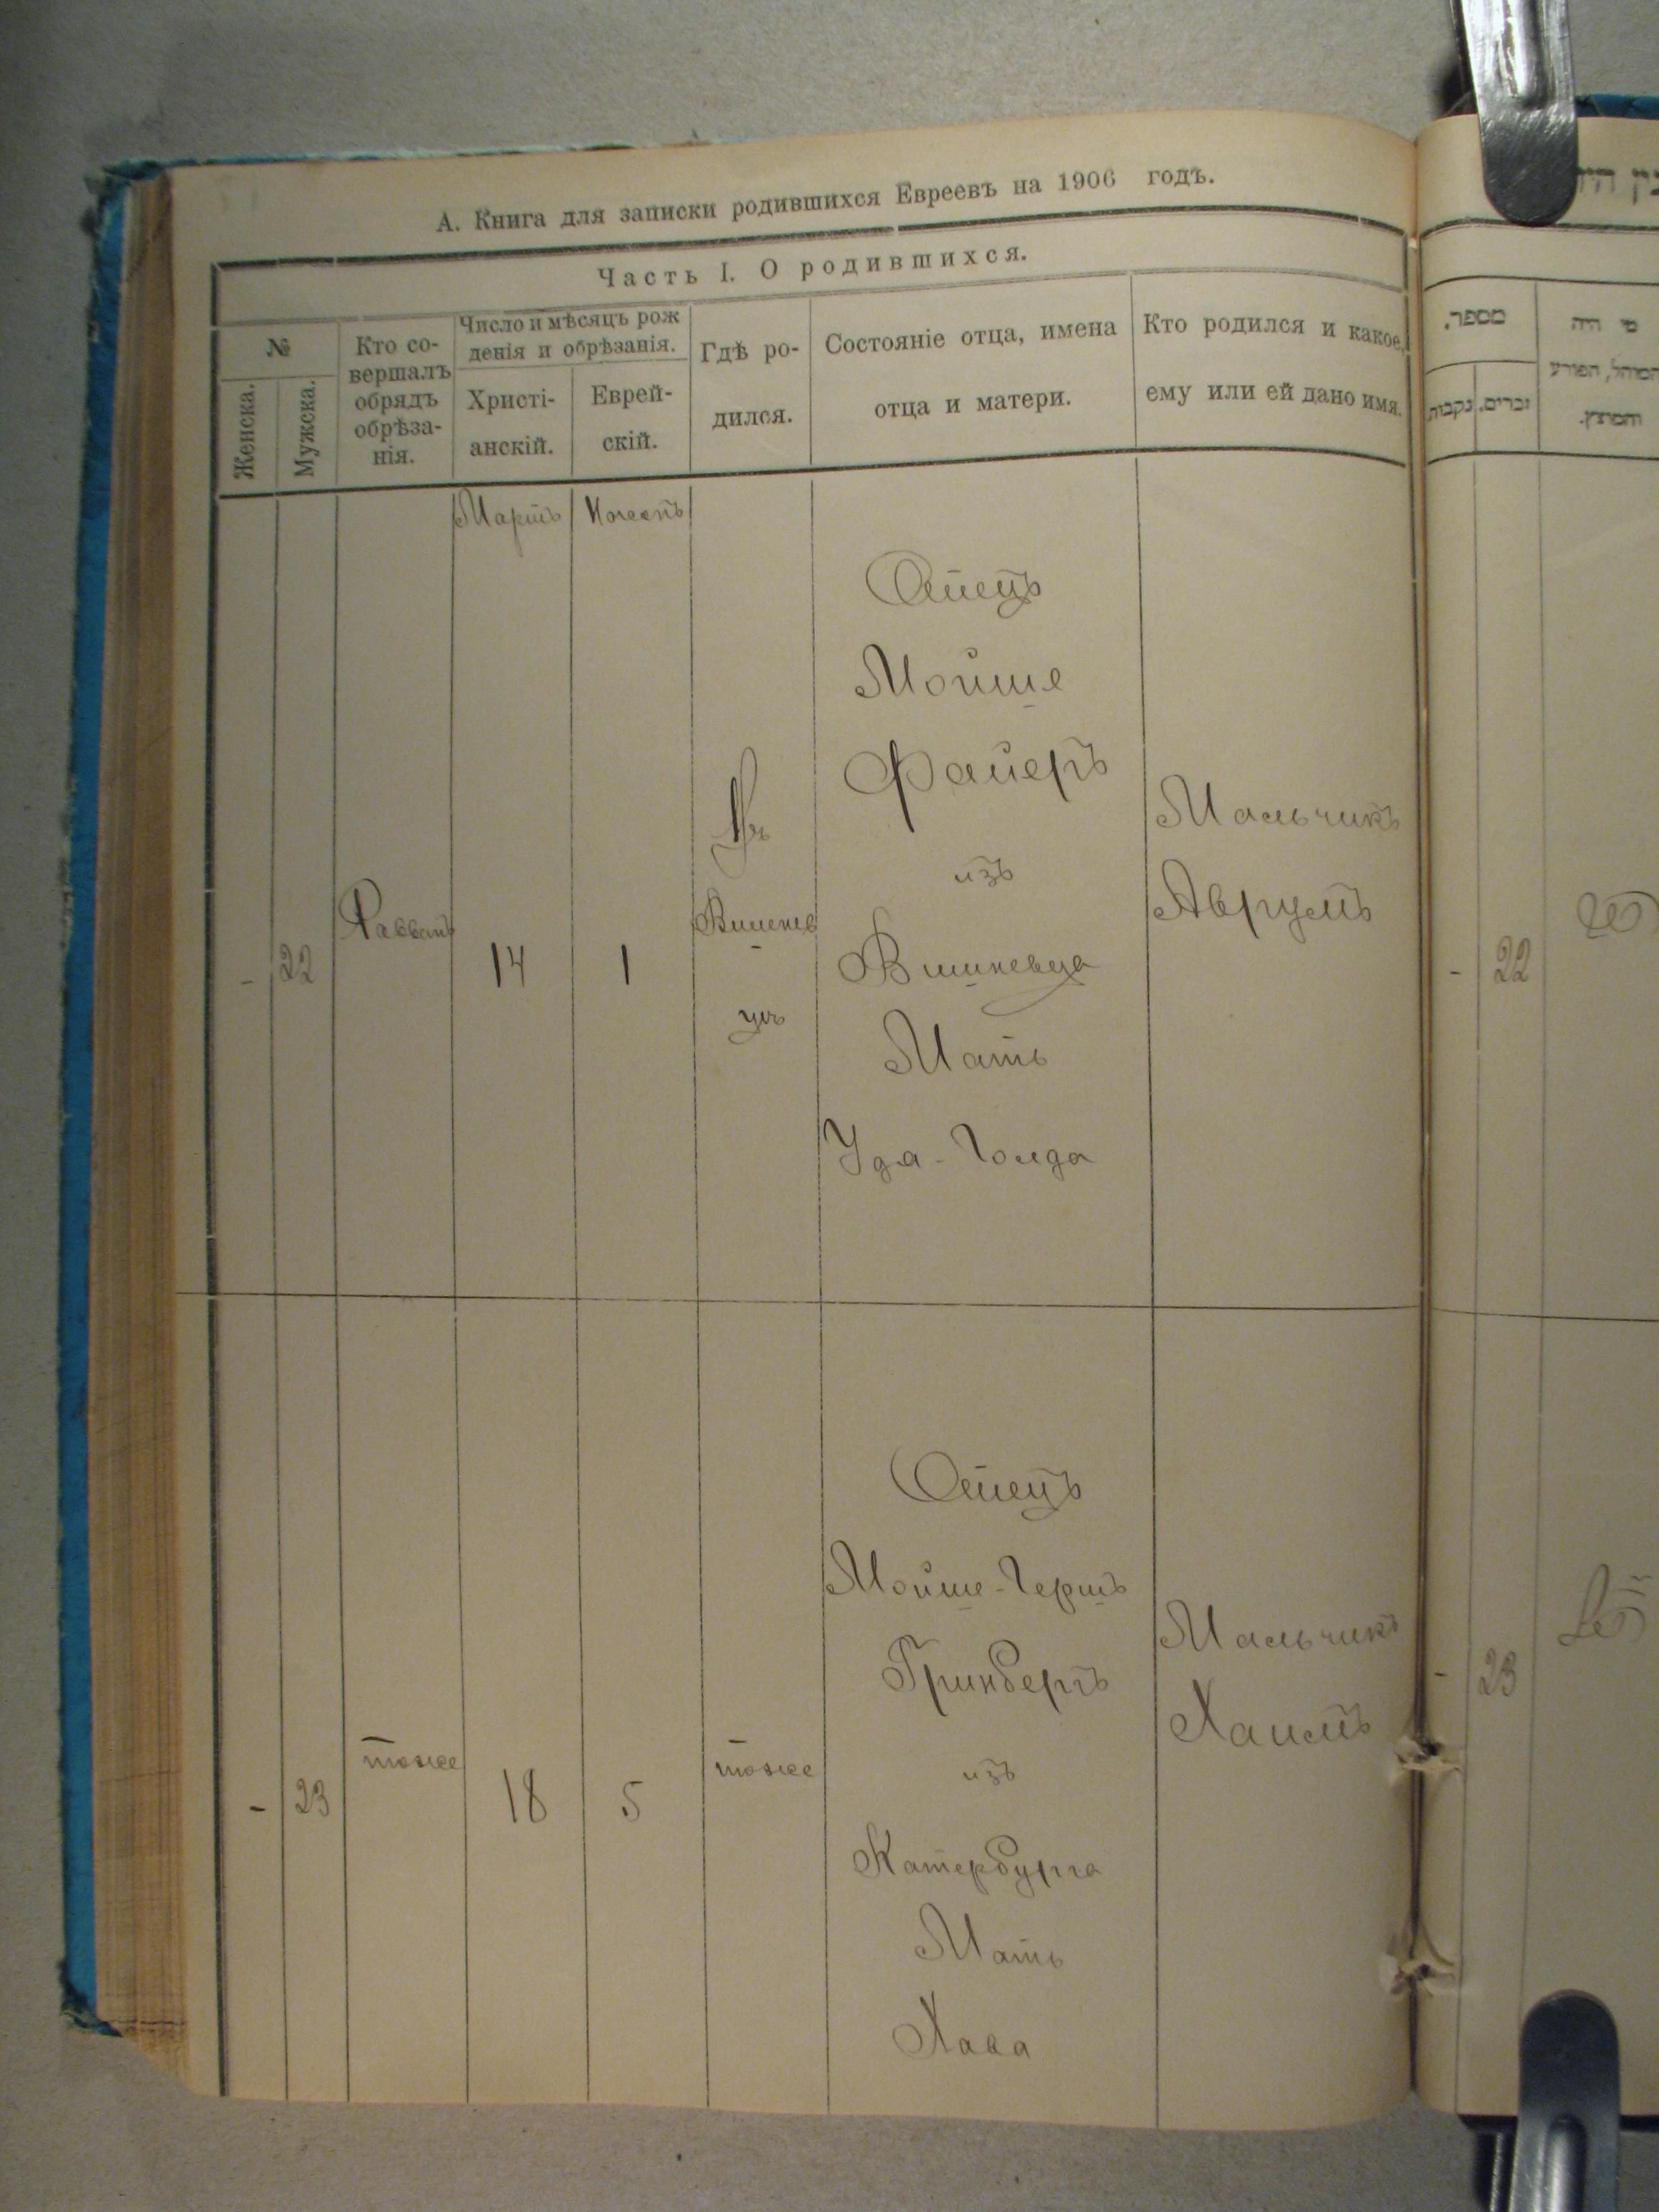 А. Книга для записки родившихся Евреевъ на 1906 годъ.
Часть I. О родившихся.
№
Женска.
Мужска.
Кто со-
вершалъ
обрядъ
обрѣза-
нія.
Число и мѣсяцъ рож
денія и обрѣзанія.
Христі-
анскій.
Еврей-
скій.
Гдѣ ро-
дился.
Состояніе отца, имена
отца и матери.
Кто родился и какое,
ему или ей дано имя.
Мартъ
-
22
Раввинъ
14
1
Въ
Вишнев
цѣ
Отецъ
Мойше
Файеръ
изъ
Вишневца
Мать
Удя-Голда
Мальчикъ
Аврумъ
-
23
тоже
18
5
тоже
Отецъ
Мойше-Гершъ
Гринбергъ
изъ
Катербурга
Мать
Хава
Мальчикъ
Хаимъ
מספר.
נקבות
זכרים.
מי היה
המוהל, הפורע
והמוצץ.
-
22
-
23